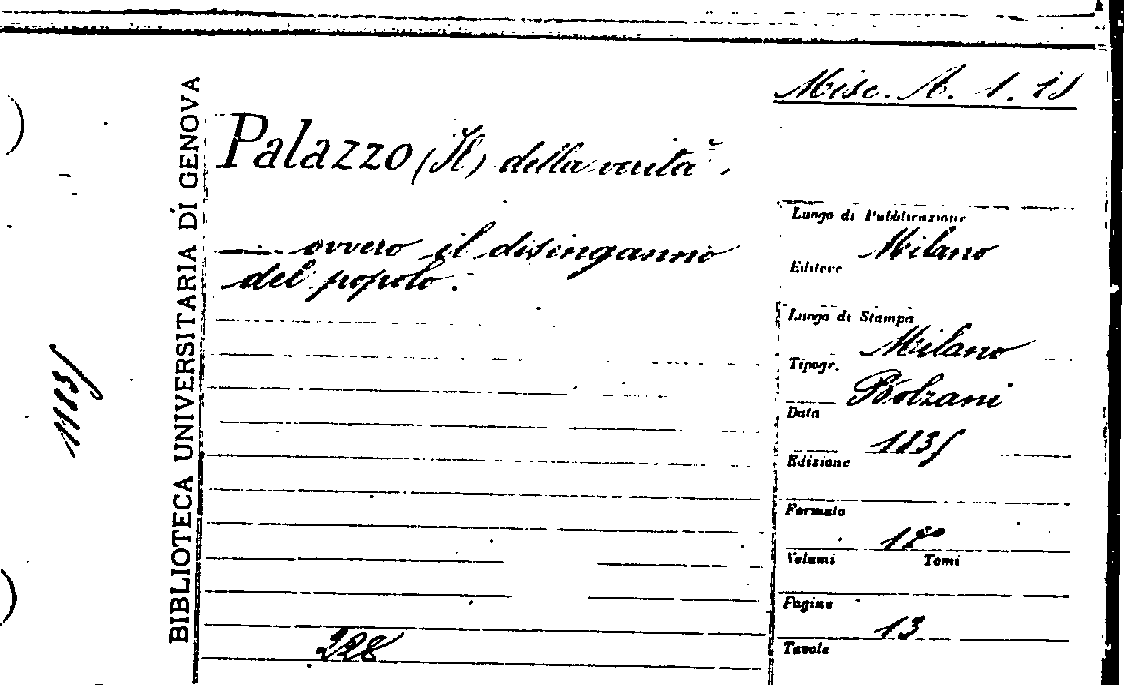 Misc. A. 1. 15
BIBLIOTECA UNIVERSITARIA DI GENOVA
Palazzo (Il) della verità.
— ovvero il disinganno
del popolo.
Luogo di Pubblicazione
Milano
Editore
Luogo di Stampa
Milano
Tipogr.
Bolzani
Data
Edizione
Formato
Volumi Tomi
Pagine
13
Tavole
228